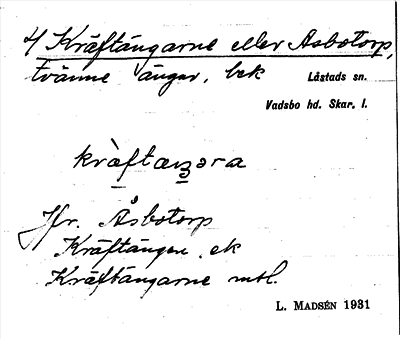 4/ Kräftängarne eller Åsbotorp,
tvänne ängar, bek
Låstads sn.
Vadsbo hd. Skar. l.
Jfr. Åsbotorp
Kräftängen, ek
Kräftängarne mtl.
L. MADSÉN 1931